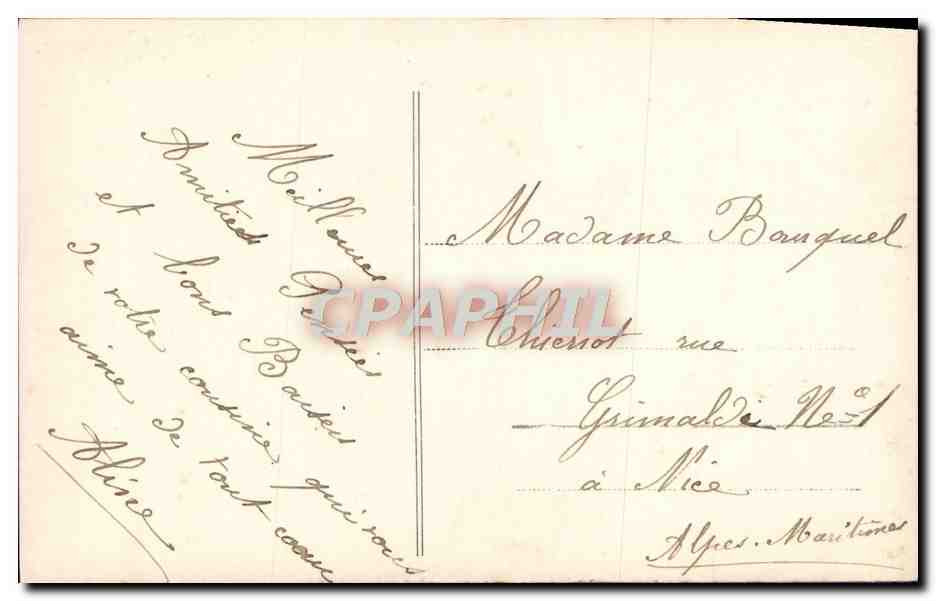 Meilleures
Amitiés Pensées
et bons Baisers
de votre cousine qui vous
aime de tout coeur
Aline
Madame Bouquel
Thierrot rue
Grimaldi No 1
à Nice
Alpes-Maritimes
CPAPHIL